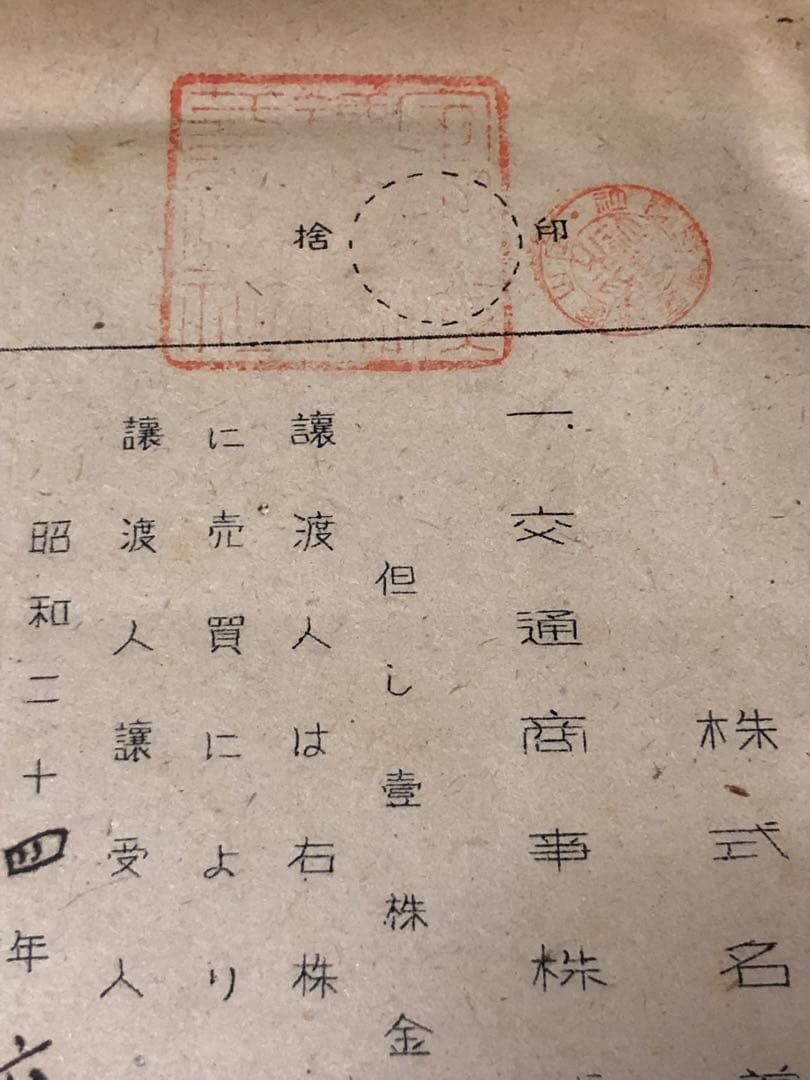 捨印
株式名
一、交通商事株
但し壹株金
讓渡人は右株
に売買により
讓渡人讓受人
昭和二十四年六